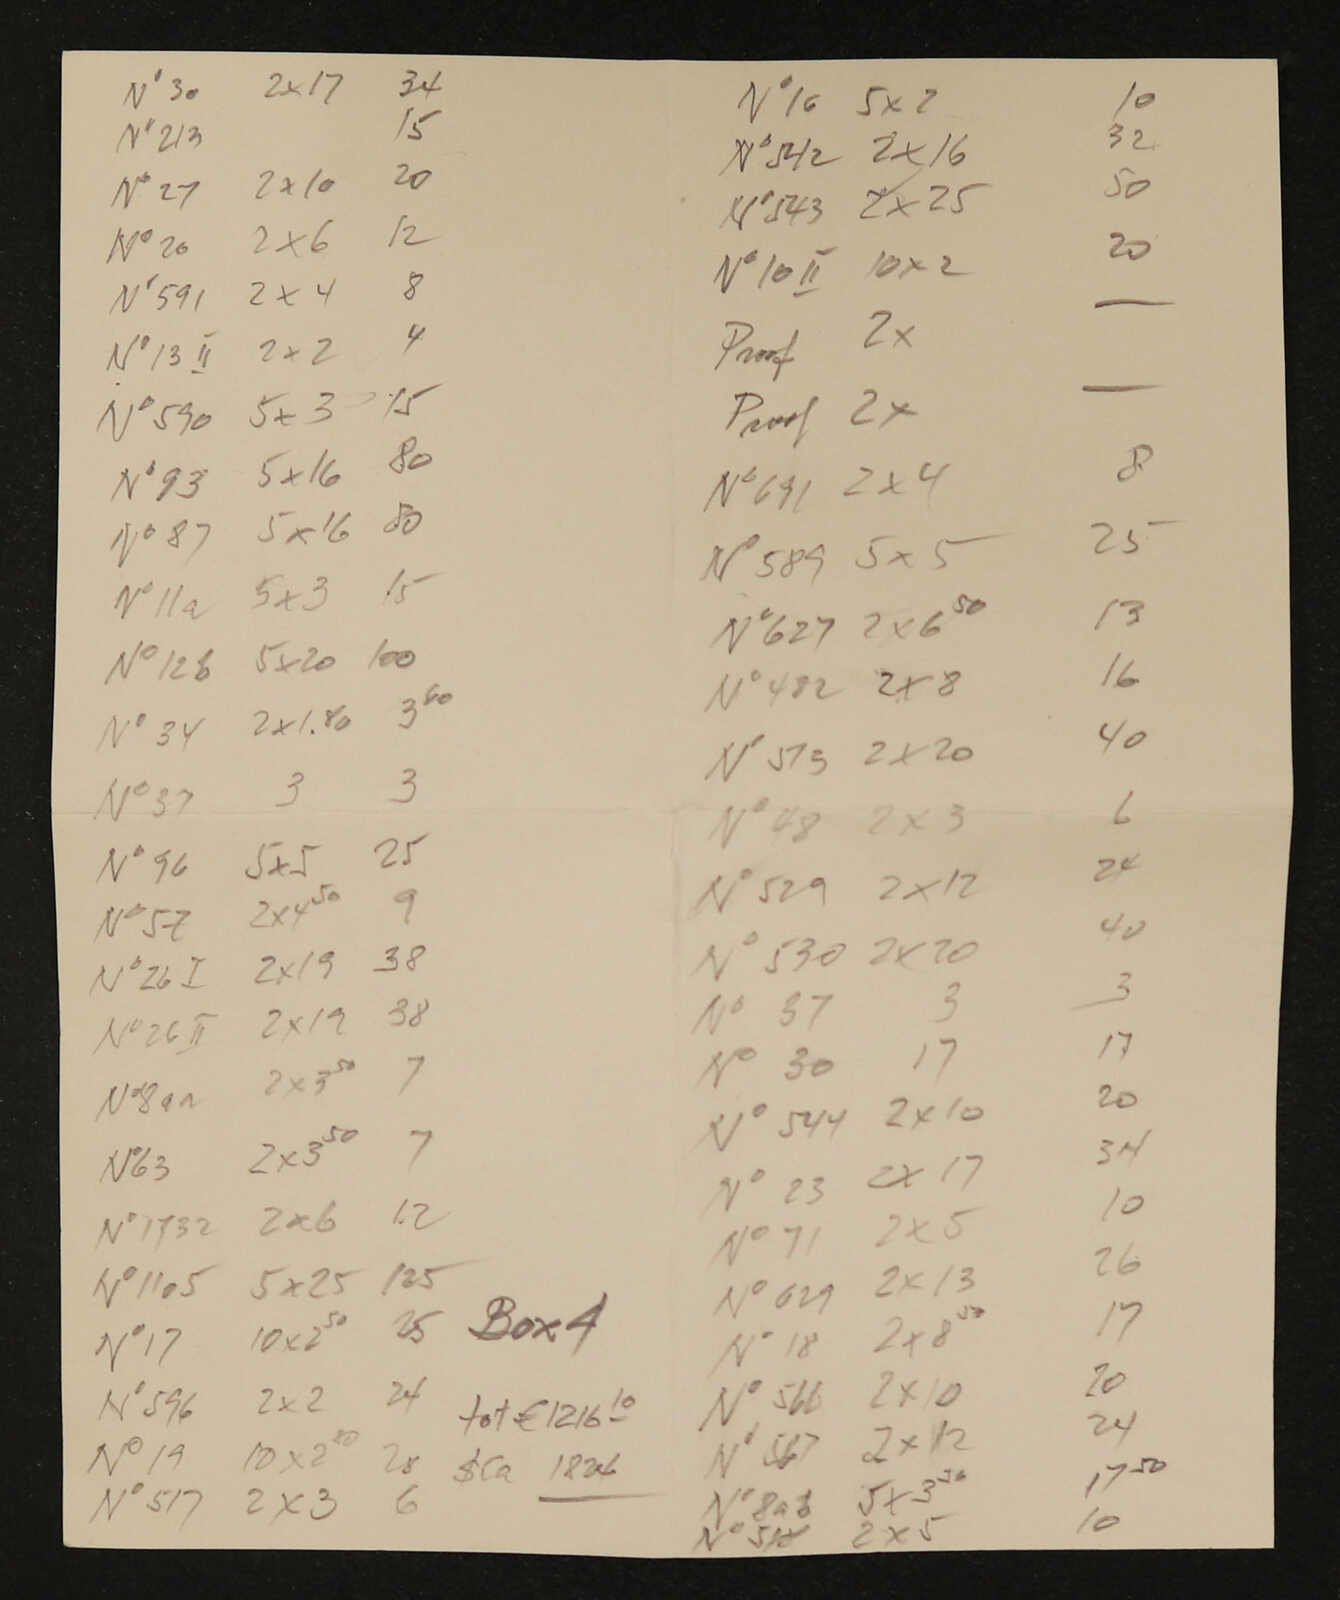 Nº 30 2x17 34
Nº 213 15
Nº 27 2x10 20
Nº 20 2x6 12
Nº 591 2x4 8
Nº 13 II 2x2 4
Nº 590 5x3 15
Nº 93 5x16 80
Nº 87 5x16 80
Nº 11a 5x3 15
Nº 12b 5x20 100
Nº 34 2x1.80 3 60
Nº 37 3 3
Nº 96 5x5 25
Nº 57 2x4 50 9
Nº 26 I 2x19 38
Nº 26 II 2x19 38
Nº 8aa 2x3 50 7
Nº 63 2x3 50 7
Nº 1732 2x6 12
Nº 1105 5x25 125
Nº 17 10x2 50 25
Nº 596 2x2 24
Nº 19 10x2 80 28
Nº 517 2x3 6
Box 4
tot € 1216 10
$ Ca 1826
Nº 16 5x2 10
Nº 542 2x16 32
Nº 543 2x25 50
Nº 10 II 10x2 20
Proof 2x —
Proof 2x —
Nº 691 2x4 8
Nº 589 5x5 25
Nº 627 2x6 50 13
Nº 482 2x8 16
Nº 573 2x20 40
Nº 48 2x3 6
Nº 529 2x12 24
Nº 530 2x20 40
Nº 37 3 3
Nº 30 17 17
Nº 544 2x10 20
Nº 23 2x17 34
Nº 71 2x5 10
Nº 629 2x13 26
Nº 18 2x8 50 17
Nº 566 2x10 20
Nº 567 2x12 24
Nº 8ab 5x3 50 17 50
Nº 518 2x5 10